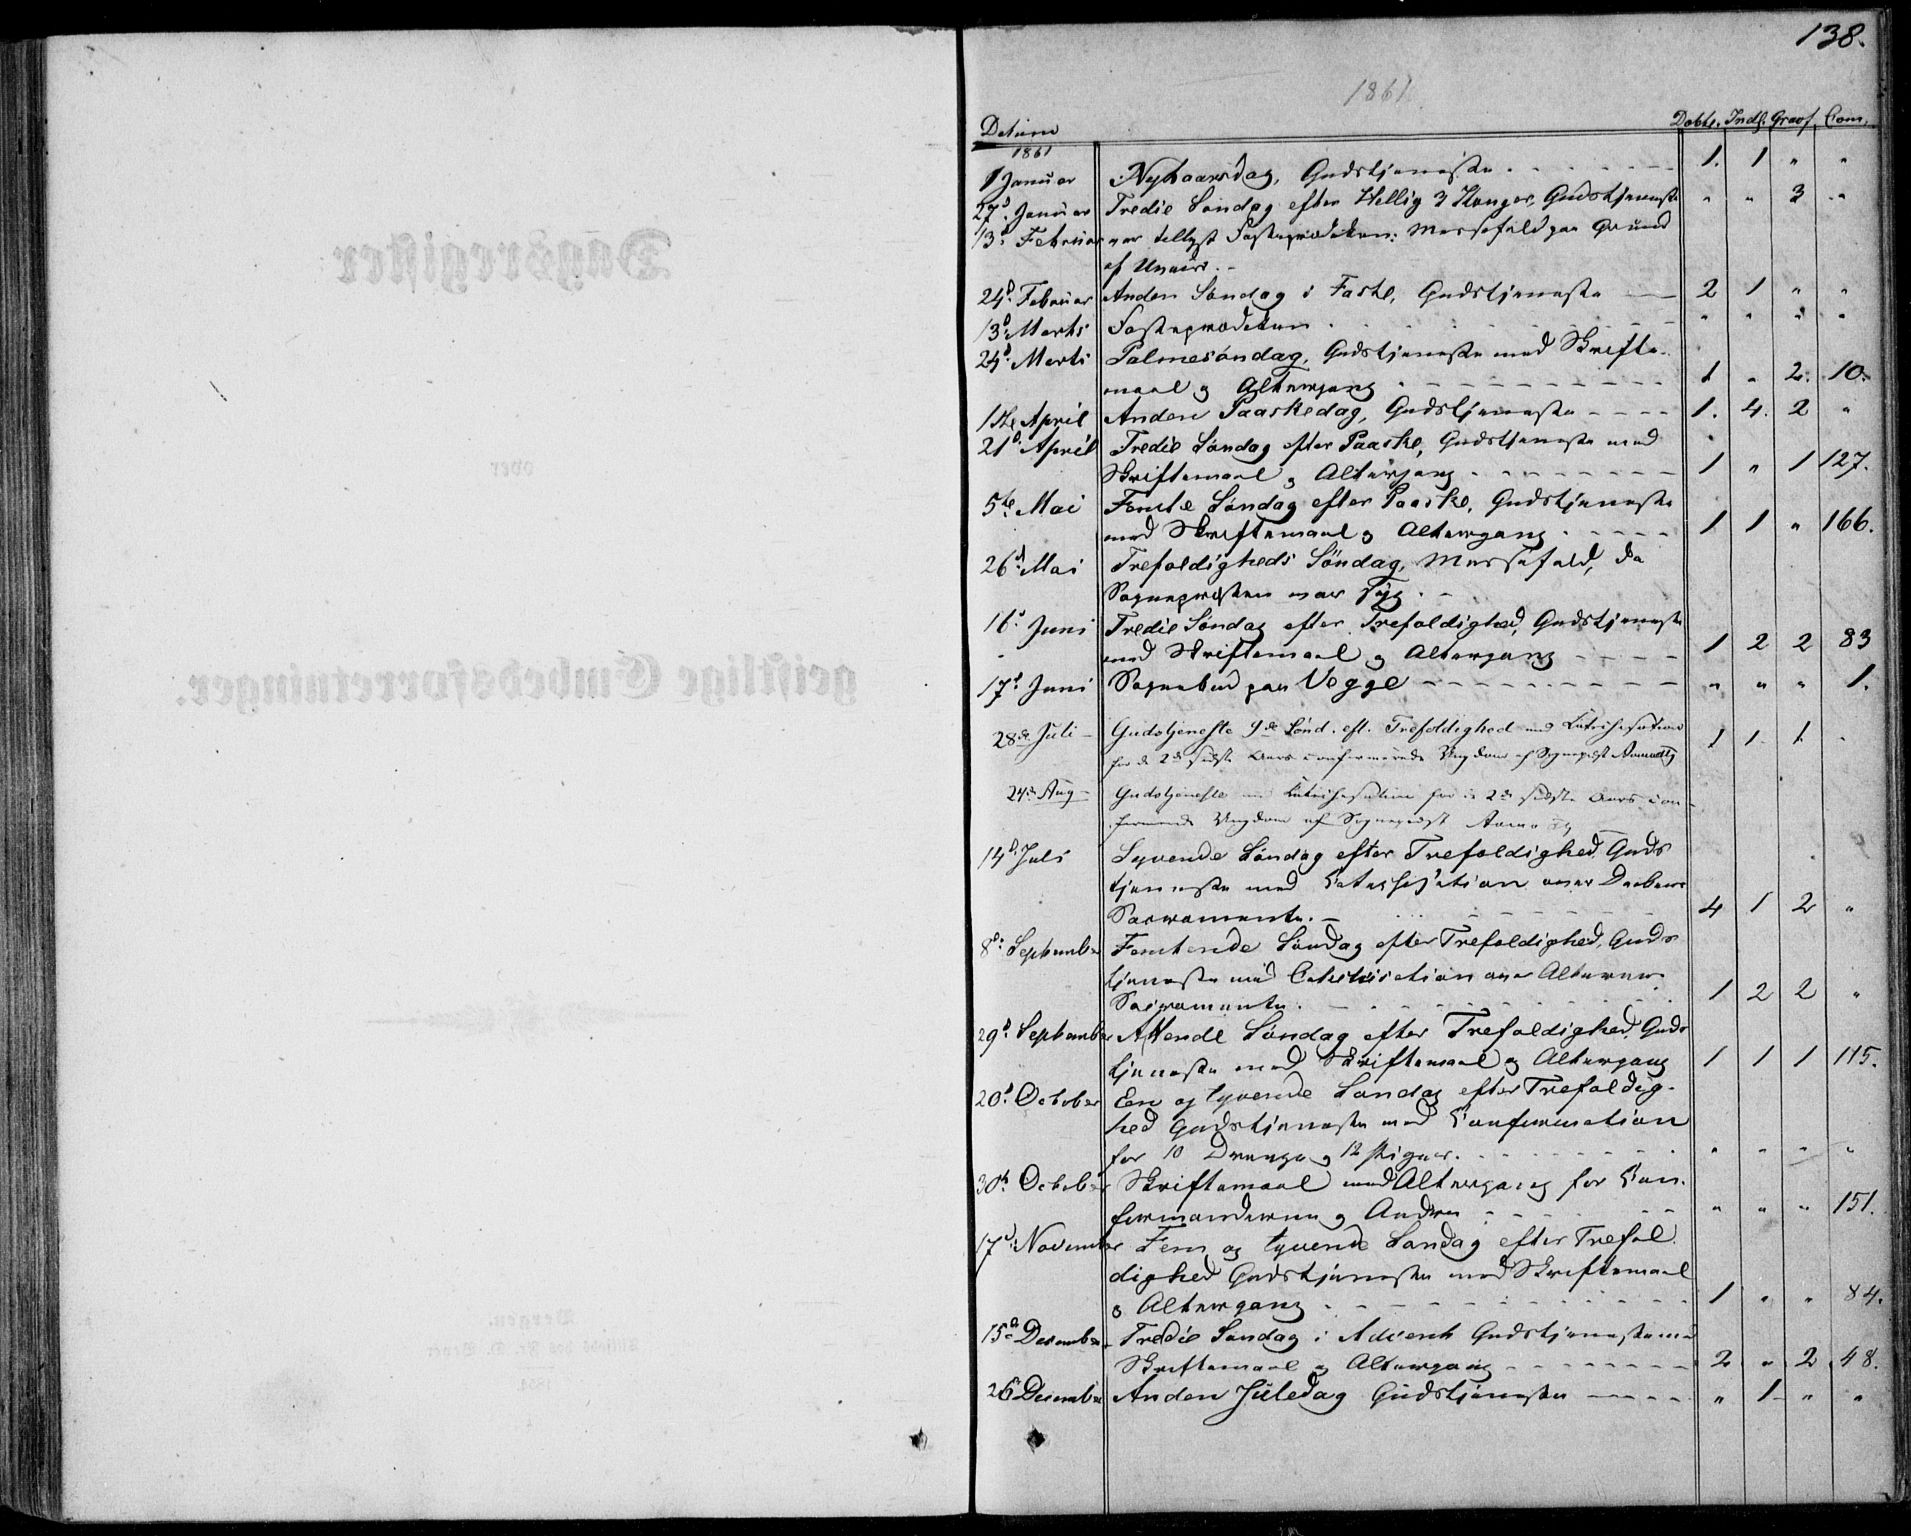 138.
1861
Datum Døbte. Indl. Gravf. Com.
1861
1 Januar Nytaarsdag, Gudstjeneste. 1. 1 " "
27d. Januar Tredie Søndag efter Hellig 3 Konger, Gudstjeneste " " 3 "
13d. Februar var tillyst Fasteprædiken: Messefald paa Grund
af Uveir. -
24d. Februar Anden Søndag i Faste, Gudstjeneste 2 1 " "
13d. Marts Fasteprædiken " " " "
24d. Marts Palmesøndag, Gudstjeneste med Skrifte-
maal og Altergang 1 " 2. 10.
1ste April Anden Paaskedag, Gudstjeneste 1. 4. 2 "
21d. April Tredie Søndag efter Paaske, Gudstjeneste med
Skriftemaal og Altergang 1 " 1 127.
5te Mai Femte Søndag efter Paaske, Gudstjeneste
med Skriftemaal og Altergang 1 1 " 166.
26d. Mai Trefoldigheds Søndag, Messefald, da
Sognepresten var syg. -
16d. Juni Tredie Søndag efter Trefoldighed, Gudstjeneste
med Skriftemaal og Altergang 1 2 2 83
17d. Juni Sognebud paa Vegge " " " 1.
28de Juli Gudstjeneste 9de Sønd. eft. Trefoldighed med Katechisation
for de 2de sidste Aars confirmerede Ungdom af Sognepræst 1 1 1 "
24de Aug Gudstjeneste med Katechisation for de 2de sidste Aars con-
firmerede Ungdom af Sognepræst
14d. Juli Syvende Søndag efter Trefoldighed Guds
tjeneste med Catechisation over Daabens
Sacramente. 4 1 2 "
8d. September Femtende Søndag efter Trefoldighed, Guds
tjeneste med Catechisation over Alterens
Sacramente. 1 2 2 "
29d. September Attende Søndag efter Trefoldighed, Guds
tjeneste med Skriftemaal og Altergang 1 1 1 115.
20d. October Een og tyvende Søndag efter Trefoldig-
hed Gudstjeneste med Confirmation
for 10 Drenge og 12 Piger. " " " "
30d. October Skriftemaal med Altergang for Con-
firmanderne og Andre " " " 151.
17d. November Fem og tyvende Søndag efter Trefol
dighed Gudstjeneste med Skriftemaal
og Altergang 1 " " 84.
15d. December Tredie Søndag i Advent Gudstjeneste med
Skriftemaal og Altergang 2 " 2 48.
26 December Anden Juledag Gudstjeneste " 1 " "
Dagsregister
over
geistlige Embedsforretninger.
Bergen.